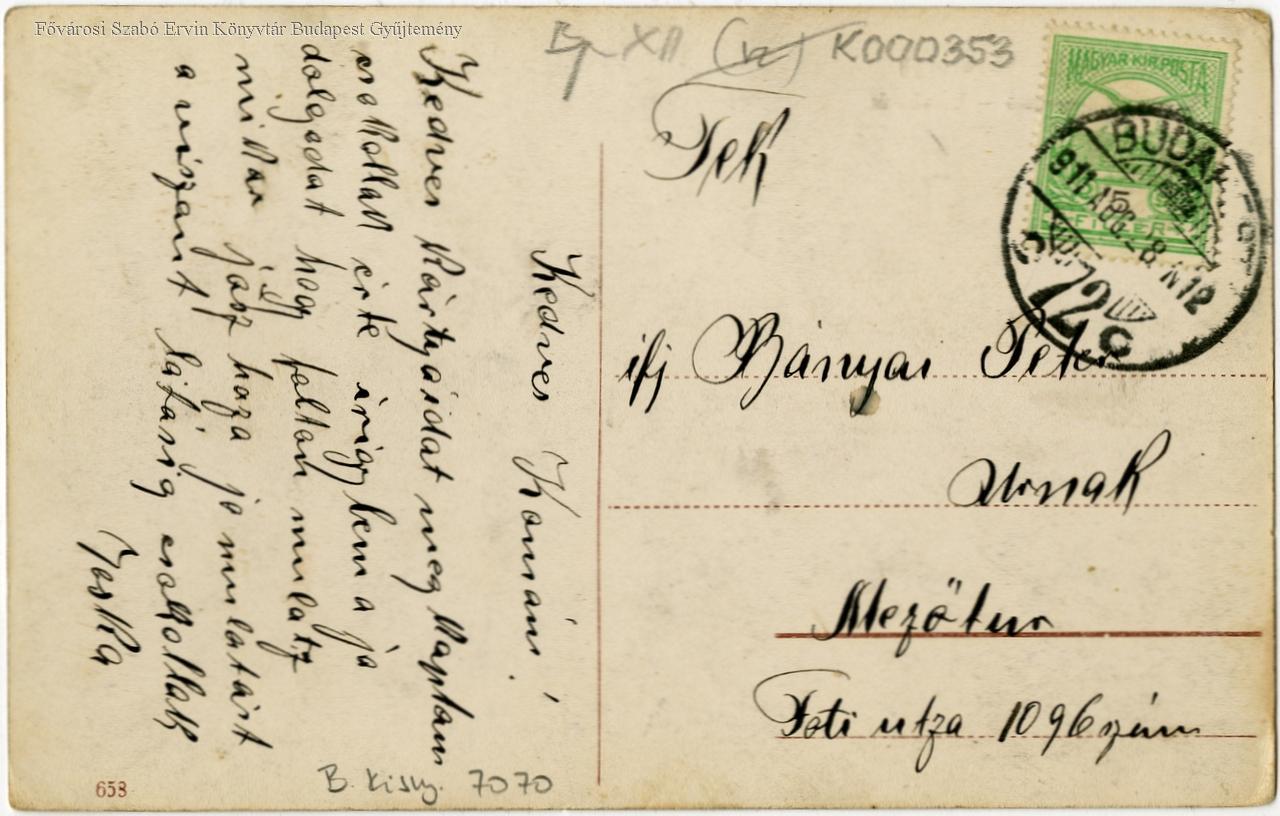 Fővárosi Szabó Ervin Könyvtár Budapest Gyűjtemény
Bp XII (12) K000353
MAGYAR KIR. POSTA
BUDAPEST
911 AUG -8 N12
72
C
Tek
ifj Bányai Peter
Urnak
Mezőtur
Foti utza 1096 szám
Kedves Komám!
Kedves kártyáidat meg kaptam
csokollak érte irigylem a ja
dolgodat hogy foltan mulatz
mikor jösz haza jo mulatást
a viszont látásig csokollak
Joska
658
B. Kisny. 7070